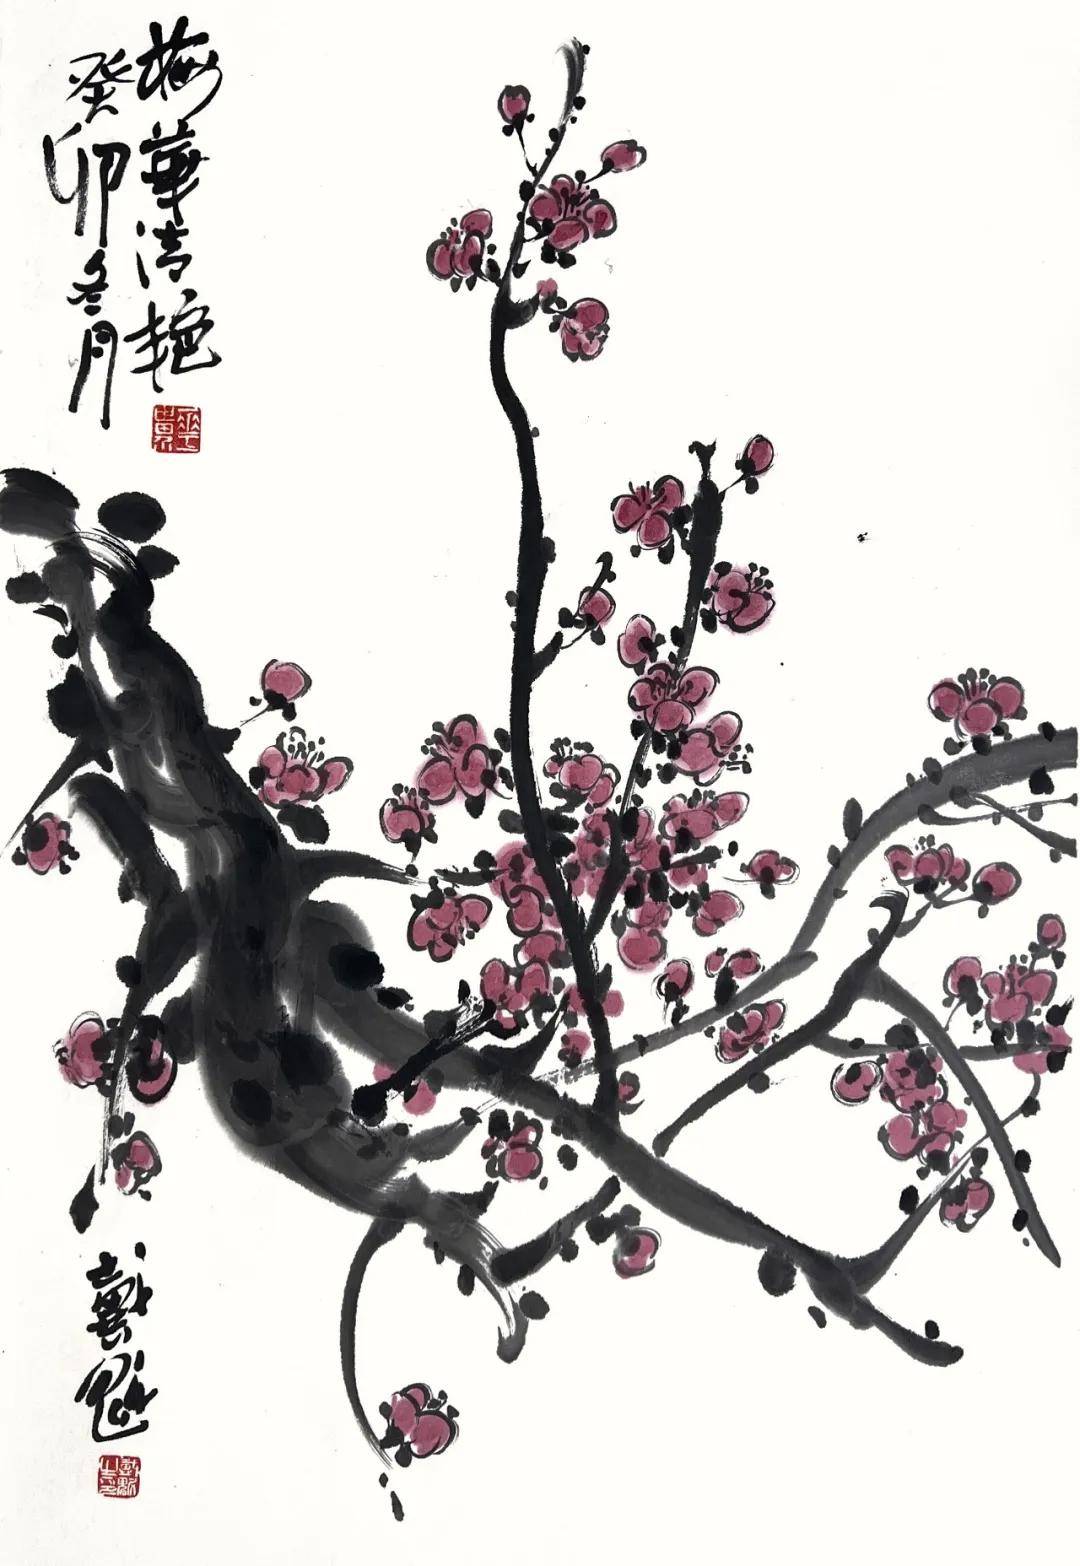 梅華清艳
癸卯冬月
戴